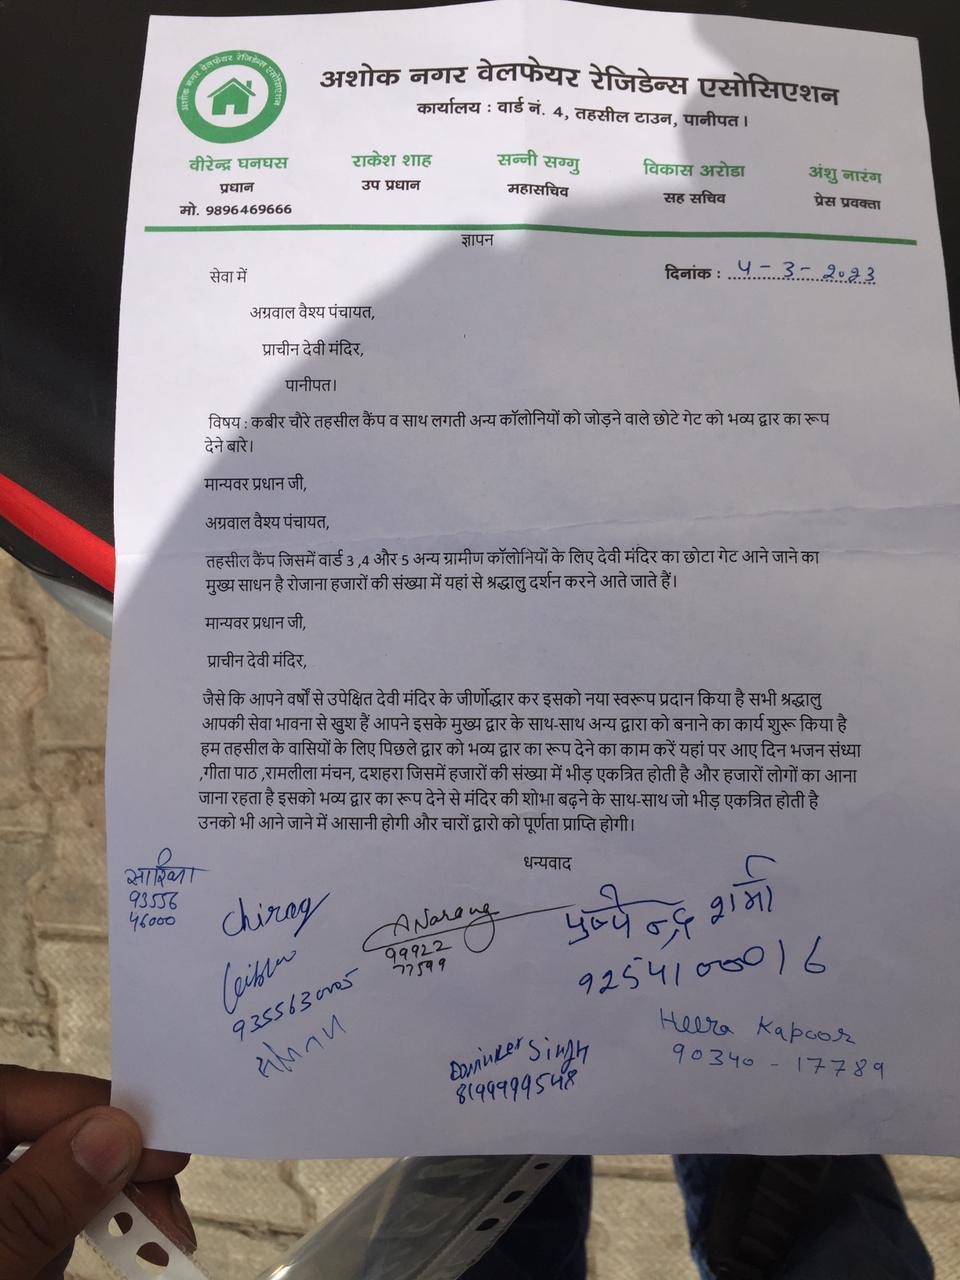 अशोक नगर वेलफेयर रेजिडेन्स एसोसिएशन
अशोक नगर वेलफेयर रेजिडेन्स एसोसिएशन
कार्यालय : वार्ड नं. 4, तहसील टाउन, पानीपत।
वीरेन्द्र घनघस राकेश शाह सन्नी सग्गु विकास अरोडा अंशु नारंग
प्रधान उप प्रधान महासचिव सह सचिव प्रेस प्रवक्ता
मो. 9896469666
ज्ञापन
सेवा में दिनांक : 4-3-2023
अग्रवाल वैश्य पंचायत,
प्राचीन देवी मंदिर,
पानीपत।
विषय : कबीर चौरे तहसील कैंप व साथ लगती अन्य कॉलोनियों को जोड़ने वाले छोटे गेट को भव्य द्वार का रूप
देने बारे।
मान्यवर प्रधान जी,
अग्रवाल वैश्य पंचायत,
तहसील कैंप जिसमें वार्ड 3 ,4 और 5 अन्य ग्रामीण कॉलोनियों के लिए देवी मंदिर का छोटा गेट आने जाने का
मुख्य साधन है रोजाना हजारों की संख्या में यहां से श्रद्धालु दर्शन करने आते जाते हैं।
मान्यवर प्रधान जी,
प्राचीन देवी मंदिर,
जैसे कि आपने वर्षों से उपेक्षित देवी मंदिर के जीर्णोद्धार कर इसको नया स्वरूप प्रदान किया है सभी श्रद्धालु
आपकी सेवा भावना से खुश हैं आपने इसके मुख्य द्वार के साथ-साथ अन्य द्वारा को बनाने का कार्य शुरू किया है
हम तहसील के वासियों के लिए पिछले द्वार को भव्य द्वार का रूप देने का काम करें यहां पर आए दिन भजन संध्या
,गीता पाठ ,रामलीला मंचन, दशहरा जिसमें हजारों की संख्या में भीड़ एकत्रित होती है और हजारों लोगों का आना
जाना रहता है इसको भव्य द्वार का रूप देने से मंदिर की शोभा बढ़ने के साथ-साथ जो भीड़ एकत्रित होती है
उनको भी आने जाने में आसानी होगी और चारों द्वारो को पूर्णता प्राप्ति होगी।
धन्यवाद
93556
46000
Chirag
A Narang
99922
77599
पुष्पेन्द्र शर्मा
9254100016
Singh
8199999548
Heera Kapoor
90340 - 17789